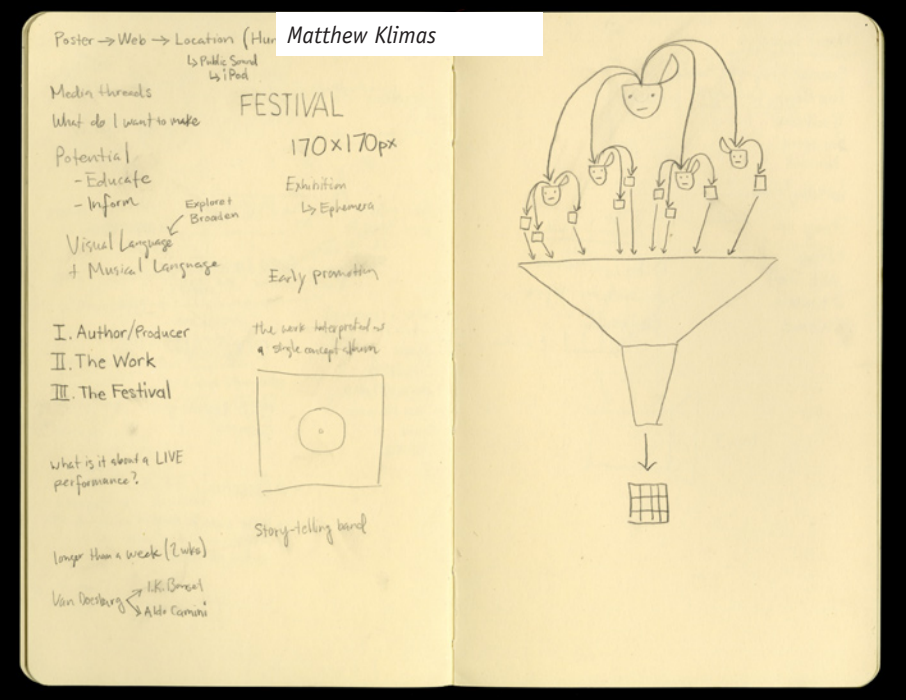 Matthew Klimas
Poster → Web → Location (Hun
↳ Public Sound
↳ iPod
Media threads
What do I want to make
Potential
- Educate
- Inform
Explore +
Broaden
Visual Language
+ Musical Language
I. Author/Producer
II. The Work
III. The Festival
what is it about a LIVE
performance?
longer than a week (2 wks)
Van Doesburg
I.K. Bonset
Aldo Camini
FESTIVAL
170x170px
Exhibition
↳ Ephemera
Early promotion
the work interpreted as
a single concept album
Story-telling band